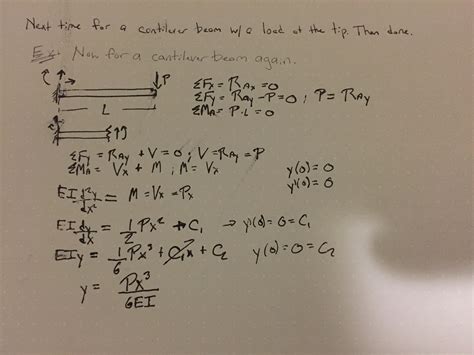 Next time for a cantilever beam w/ a load at the tip. Then done.
Ex: Now for a cantilever beam again.
P
L
ΣFx = RAx = 0
ΣFy = RAy - P = 0 ; P = RAy
ΣMA = P·L = 0
ΣFy = RAy + V = 0 ; V = RAy = P
ΣMA = Vx + M ; M = Vx
y(0) = 0
y'(0) = 0
EI d²y/dx² = M = Vx = Px
EI dy/dx = 1/2 Px² + C1 → y'(0) = 0 = C1
EIy = 1/6 Px³ + C1x + C2 y(0) = 0 = C2
y = Px³/6EI